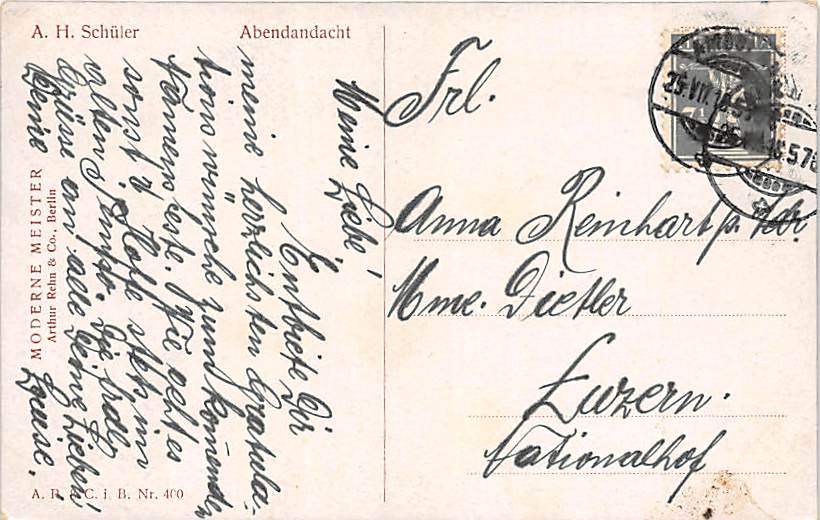 A. H. Schüler
Abendandacht
MODERNE MEISTER
Arthur Rehn & Co., Berlin
A. R. & C. i. B. Nr. 400
Meine Liebe!
Entbiete Dir
meine herzlichsten Gratula-
tionswünsche zum kommenden
Namensfeste. Wie geht es
sonst? Hoffe stets im
alten Tempo.
Grüsse an alle Deine Lieben
Deine Louise.
Frl.
Anna Reinhart
Mme. Dietler
Luzern.
Nationalhof
25.VII.